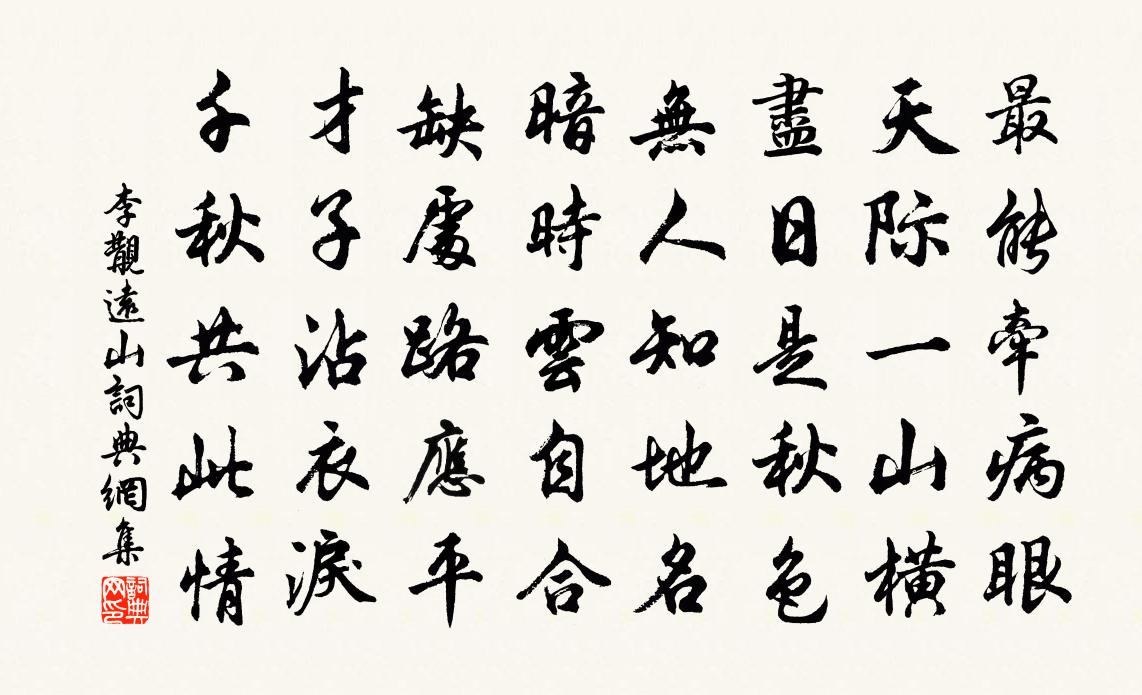 最能牽病眼
天际一山橫
盡日是秋色
無人知地名
暗時雲自合
缺處路應平
才子沾衣淚
千秋共此情
李觀遠山詞典網集
詞典
网印